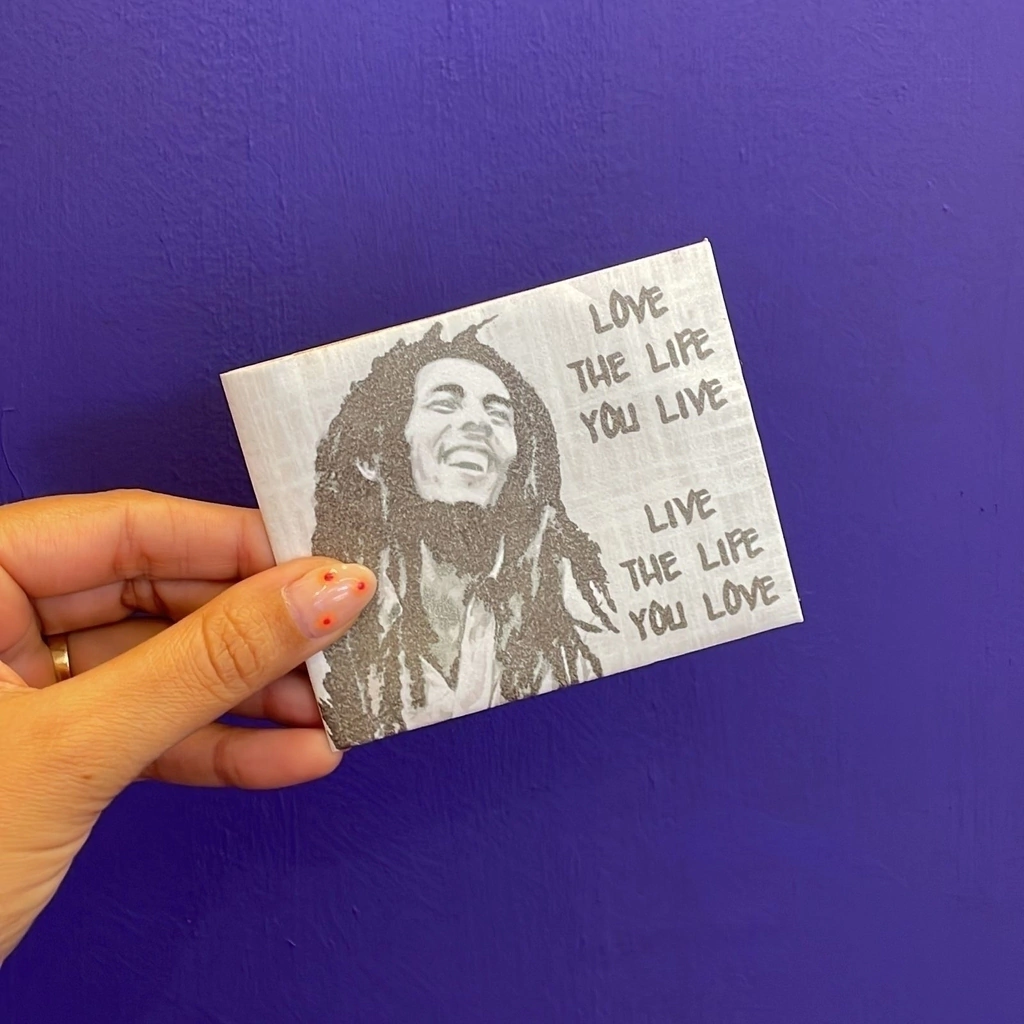 LOVE
THE LIFE
YOU LIVE
LIVE
THE LIFE
YOU LOVE